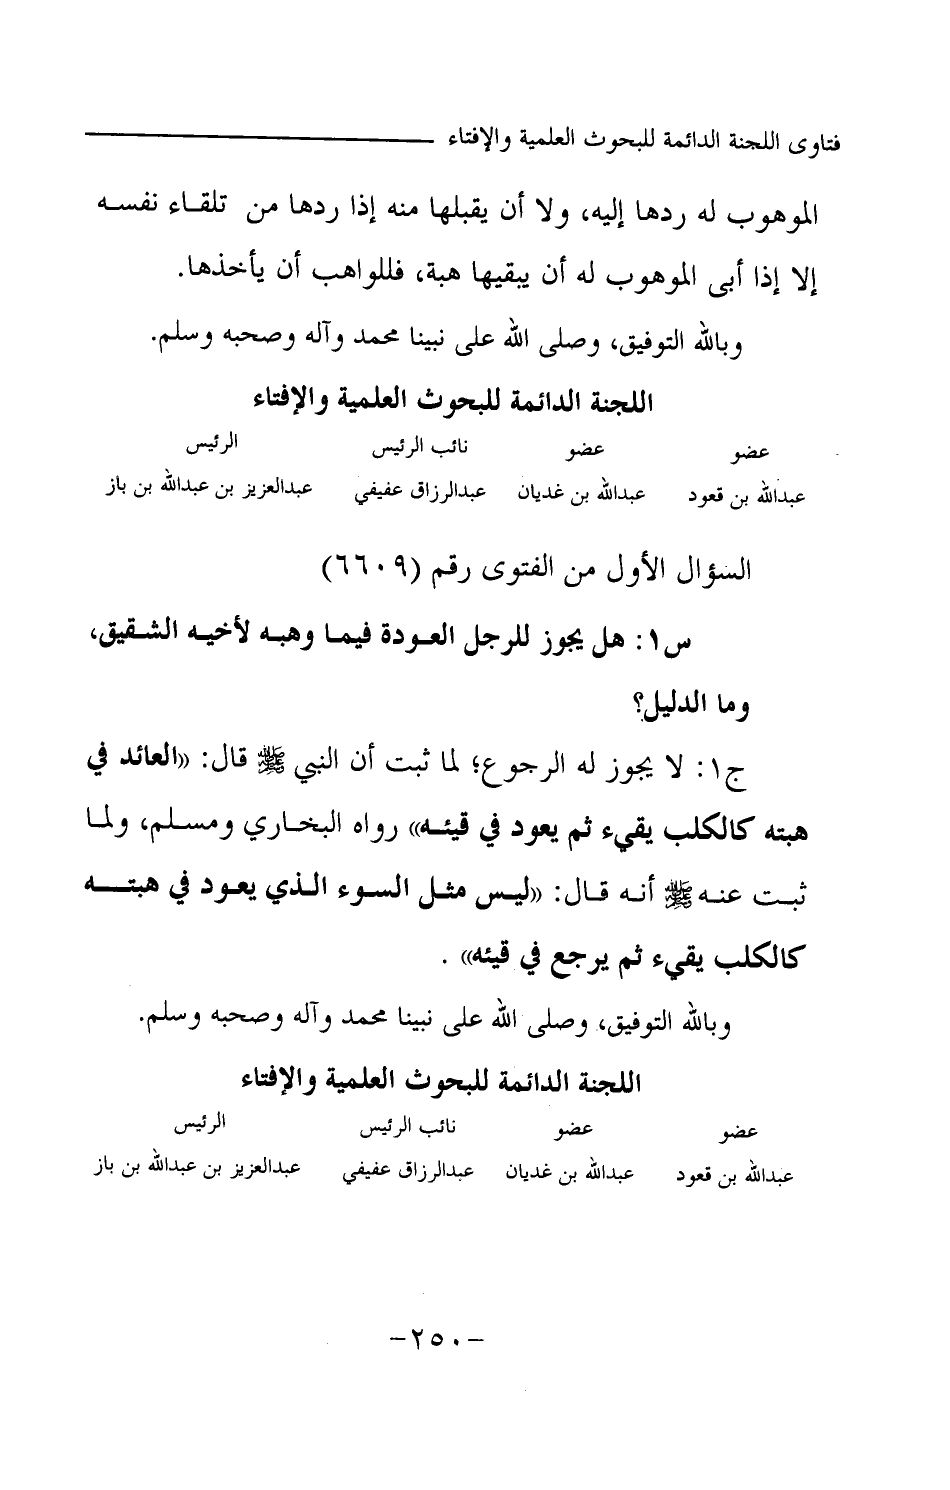 فتاوى اللجنة الدائمة للبحوث العلمية والإفتاء
الموهوب له ردها إليه، ولا أن يقبلها منه إذا ردها من تلقاء نفسه
إلا إذا أبى الموهوب له أن يبقيها هبة، فللواهب أن يأخذها.
وبالله التوفيق، وصلى الله على نبينا محمد وآله وصحبه وسلم.
اللجنة الدائمة للبحوث العلمية والإفتاء
عضو عضو نائب الرئيس الرئيس
عبدالله بن قعود عبدالله بن غديان عبدالرزاق عفيفي عبدالعزيز بن عبدالله بن باز
السؤال الأول من الفتوى رقم (٦٦٠٩)
س١: هل يجوز للرجل العودة فيما وهبه لأخيه الشقيق،
وما الدليل؟
ج١: لا يجوز له الرجوع؛ لما ثبت أن النبي ﷺ قال: «العائد في
هبته كالكلب يقيء ثم يعود في قيئه» رواه البخاري ومسلم، ولما
ثبت عنه ﷺ أنه قال: «ليس مثل السوء الذي يعود في هبته
كالكلب يقيء ثم يرجع في قيئه» .
وبالله التوفيق، وصلى الله على نبينا محمد وآله وصحبه وسلم.
اللجنة الدائمة للبحوث العلمية والإفتاء
عضو عضو نائب الرئيس الرئيس
عبدالله بن قعود عبدالله بن غديان عبدالرزاق عفيفي عبدالعزيز بن عبدالله بن باز
-٢٥٠-